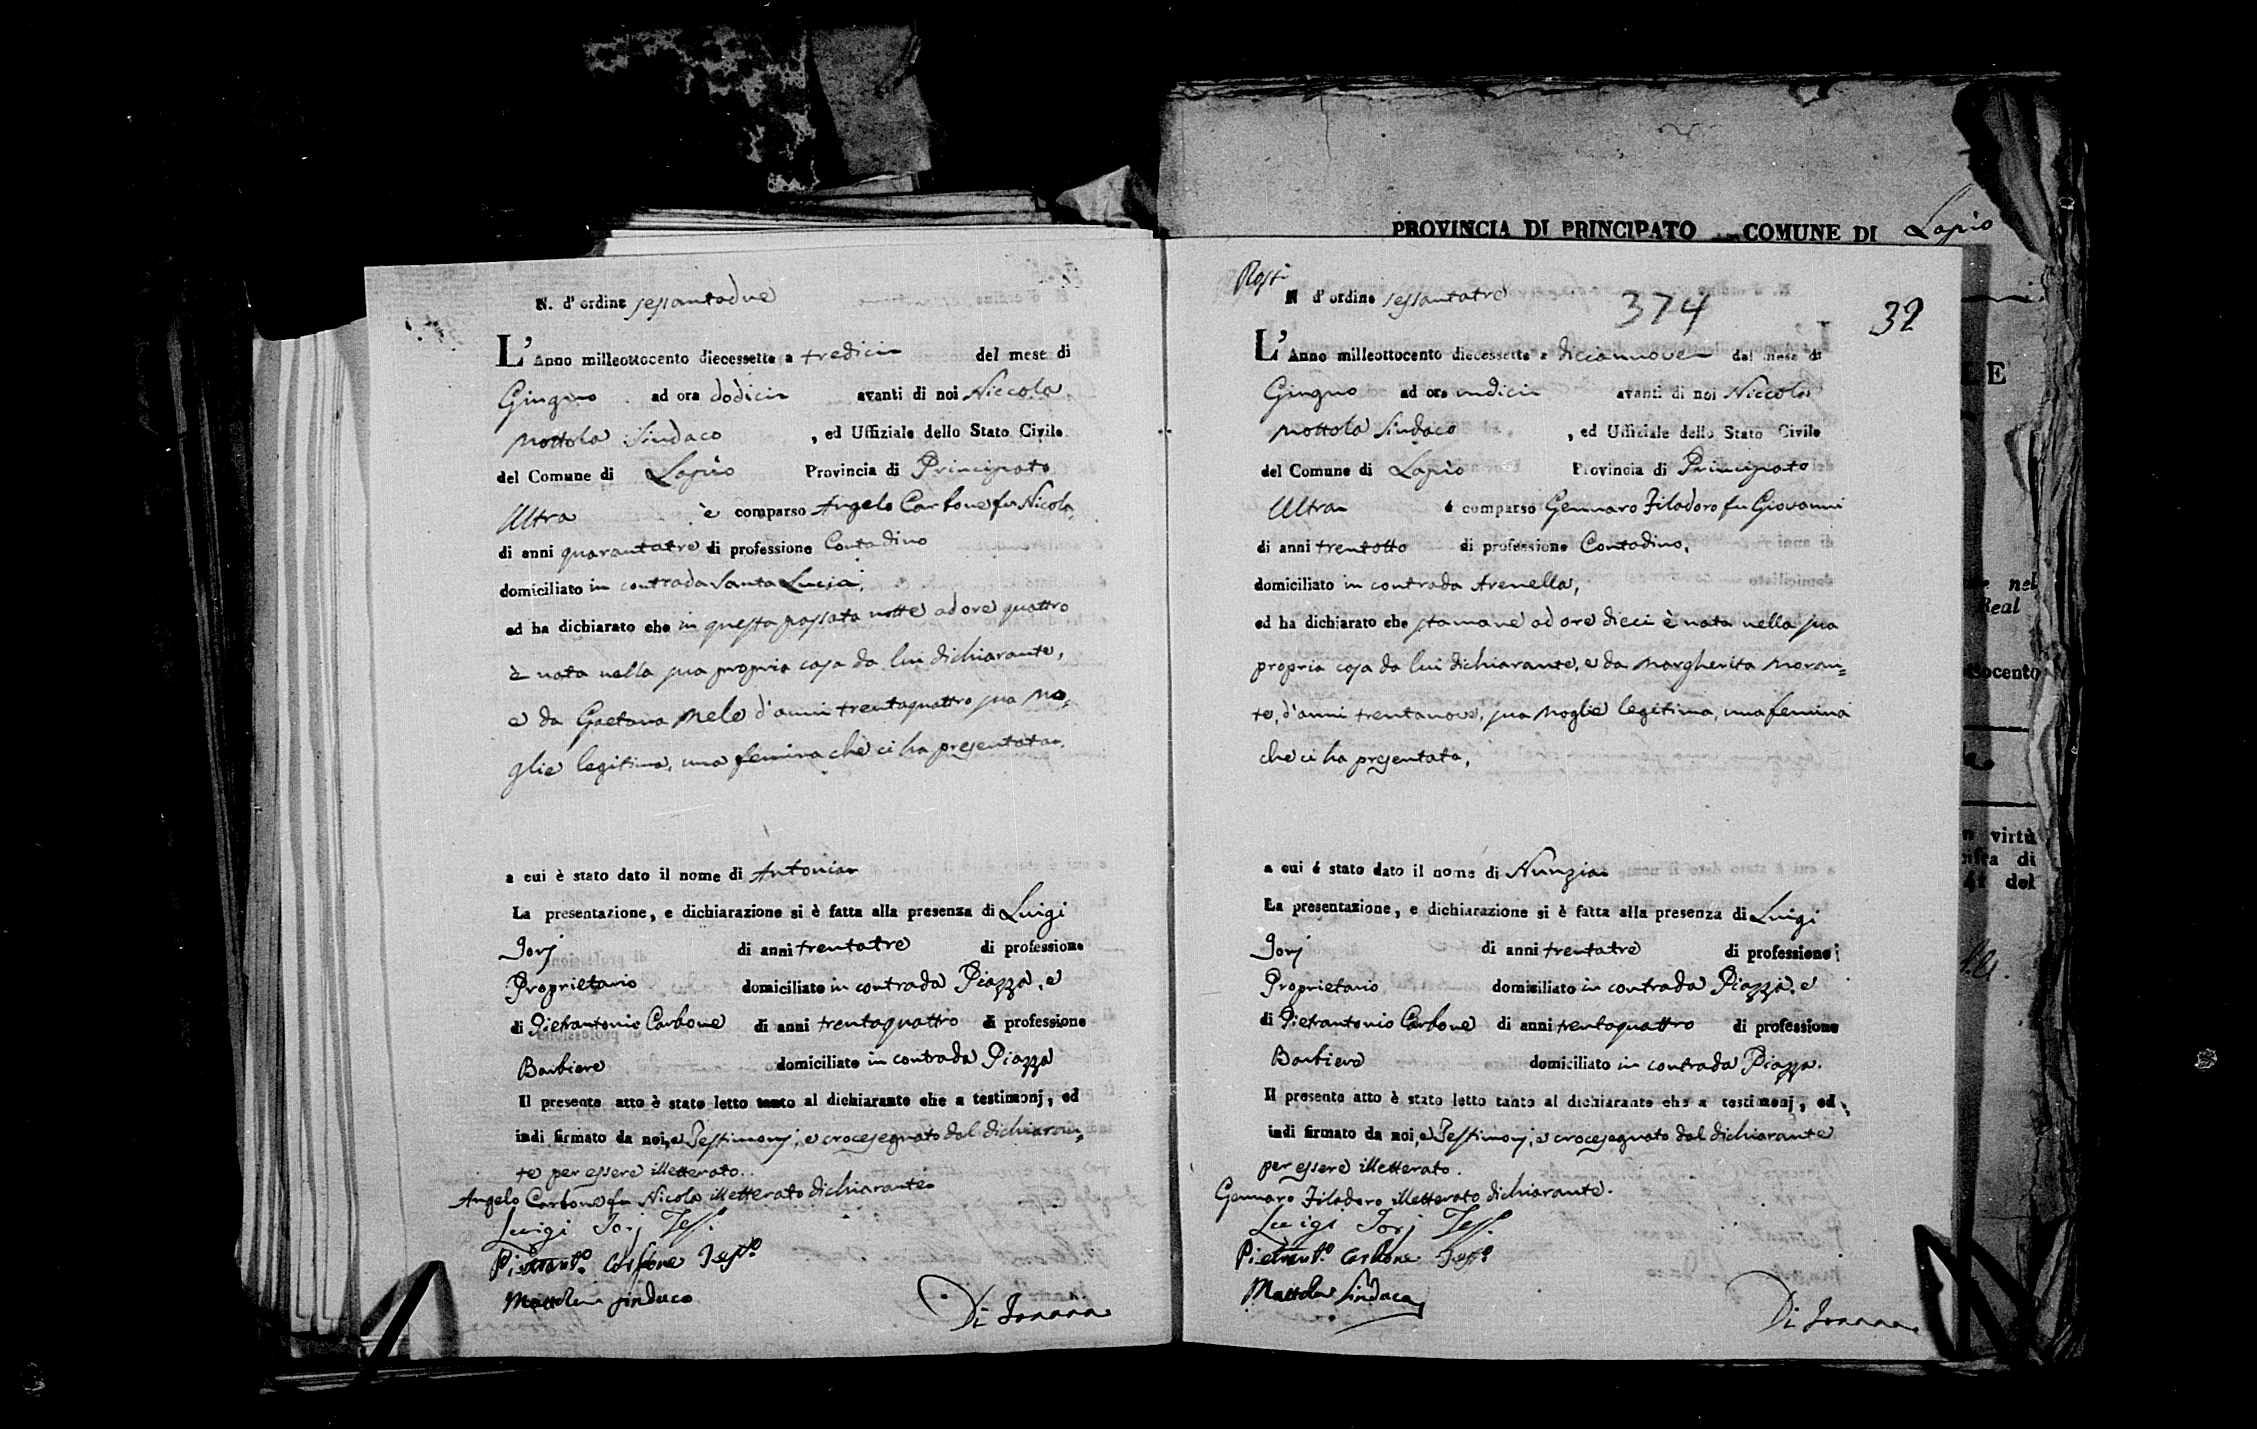 PROVINCIA DI PRINCIPATO COMUNE DI Lapio
N. d' ordine sessantadue
L' Anno milleottocento diecessette a tredici del mese di
Giugno ad ora dodici avanti di noi Niccola
Mottola Sindaco , ed Uffiziale dello Stato Civile
del Comune di Lapio Provincia di Principato
Ultra è comparso Angelo Carbone fu Nicola
di anni quarantatre di professione Contadino
domiciliato in contrada Santa Lucia,
ed ha dichiarato che in questa passata notte ad ore quattro
è nata nella sua propria casa da lui dichiarante,
e da Gaetana Mele d'anni trentaquattro sua Mo,
glie legitima, una femina che ci ha presentata.
a cui è stato dato il nome di Antonia
La presentazione, e dichiarazione si è fatta alla presenza di Luigi
Jorj di anni trentatre di professione
Proprietario domiciliato in contrada Piazza, e
di Pietrantonio Carbone di anni trentaquattro di professione
Barbiere domiciliato in contrada Piazza
Il presente atto è stato letto tanto al dichiarante che a testimonj, ed
indi firmato da noi, e Testimonj, e crocesegnato dal dichiaran,
te per essere illetterato.
Angelo Carbone fu Nicola illetterato dichiarante
Luigi Jorj Tess.
Pietrant.º Carbone Test.º
Mottola Sindaco
Di Joanna
N d' ordine sessantatre
374
32
L' Anno milleottocento diecessette a diciannove del mese di
Giugno ad ora undici avanti di noi Niccola
Mottola Sindaco , ed Uffiziale dello Stato Civile
del Comune di Lapio Provincia di Principato
Ultra è comparso Gennaro Filadoro fu Giovanni
di anni trentotto di professione Contadino,
domiciliato in contrada Arenella,
ed ha dichiarato che stamane ad ore dieci è nata nella sua
propria casa da lui dichiarante, e da Margherita Moran=
te, d'anni trentanove, sua Moglie legitima, una femina
che ci ha presentata,
a cui é stato dato il nome di Nunzia
La presentazione, e dichiarazione si è fatta alla presenza di Luigi
Jorj di anni trentatre di professione
Proprietario domiciliato in contrada Piazza, e
di Pietrantonio Carbone di anni trentaquattro di professione
Barbiere domiciliato in contrada Piazza.
Il presente atto è stato letto tanto al dichiarante che a testimonj, ed
indi firmato da noi, e Testimonj, e crocesegnato dal dichiarante
per essere illetterato.
Gennaro Filadoro illetterato dichiarante.
Luigi Jorj Tess.
Pietrant.º Carbone Test.º
Mottola Sindaco
Di Joanna
E
nel
Real
ocento
virtù
di
41 del